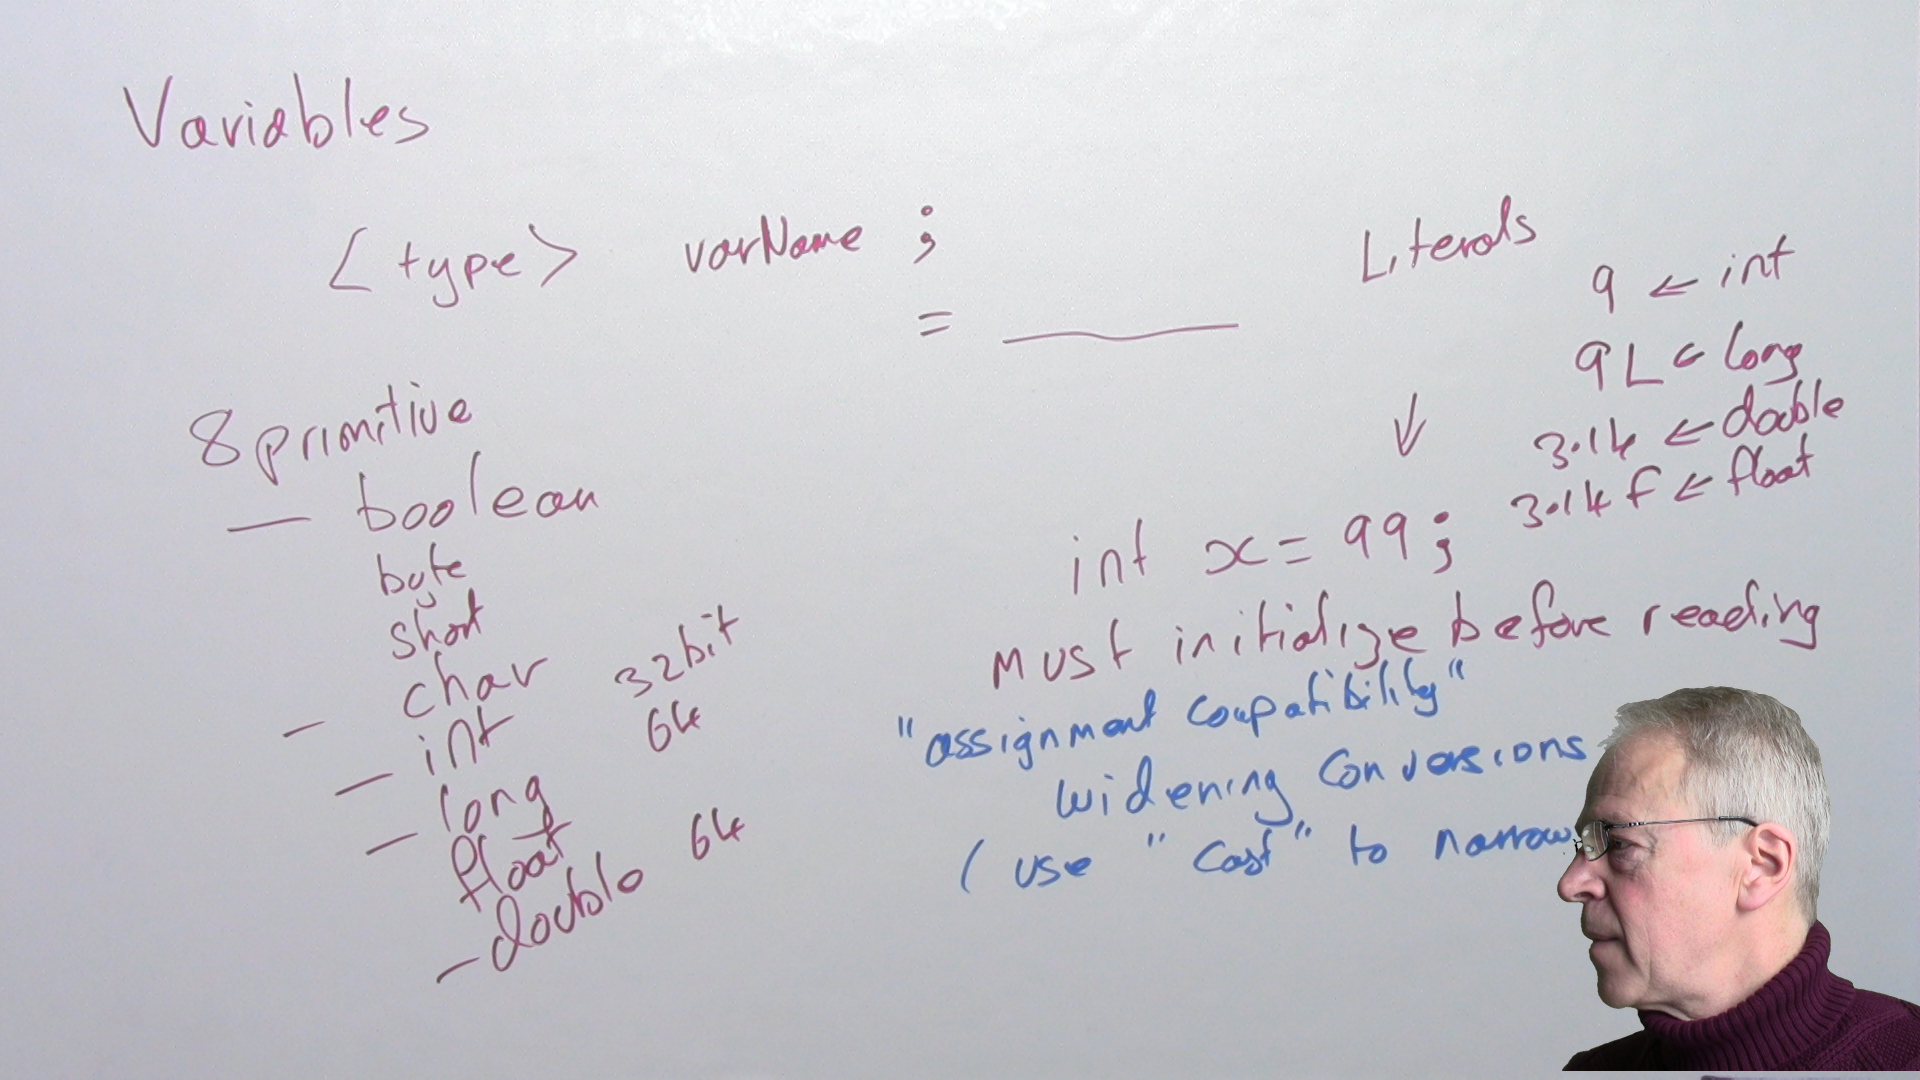 Variables
<type> varName ;
= ______
8 primitive
— boolean
byte
short
— char
— int 32bit
— long 64
float
— double 64
Literals
9 ← int
9L ← long
3.14 ← double
3.14f ← float
↓
int x = 99;
Must initialize before reading
"assignment compatibility"
widening conversions
(use "cast" to narrow